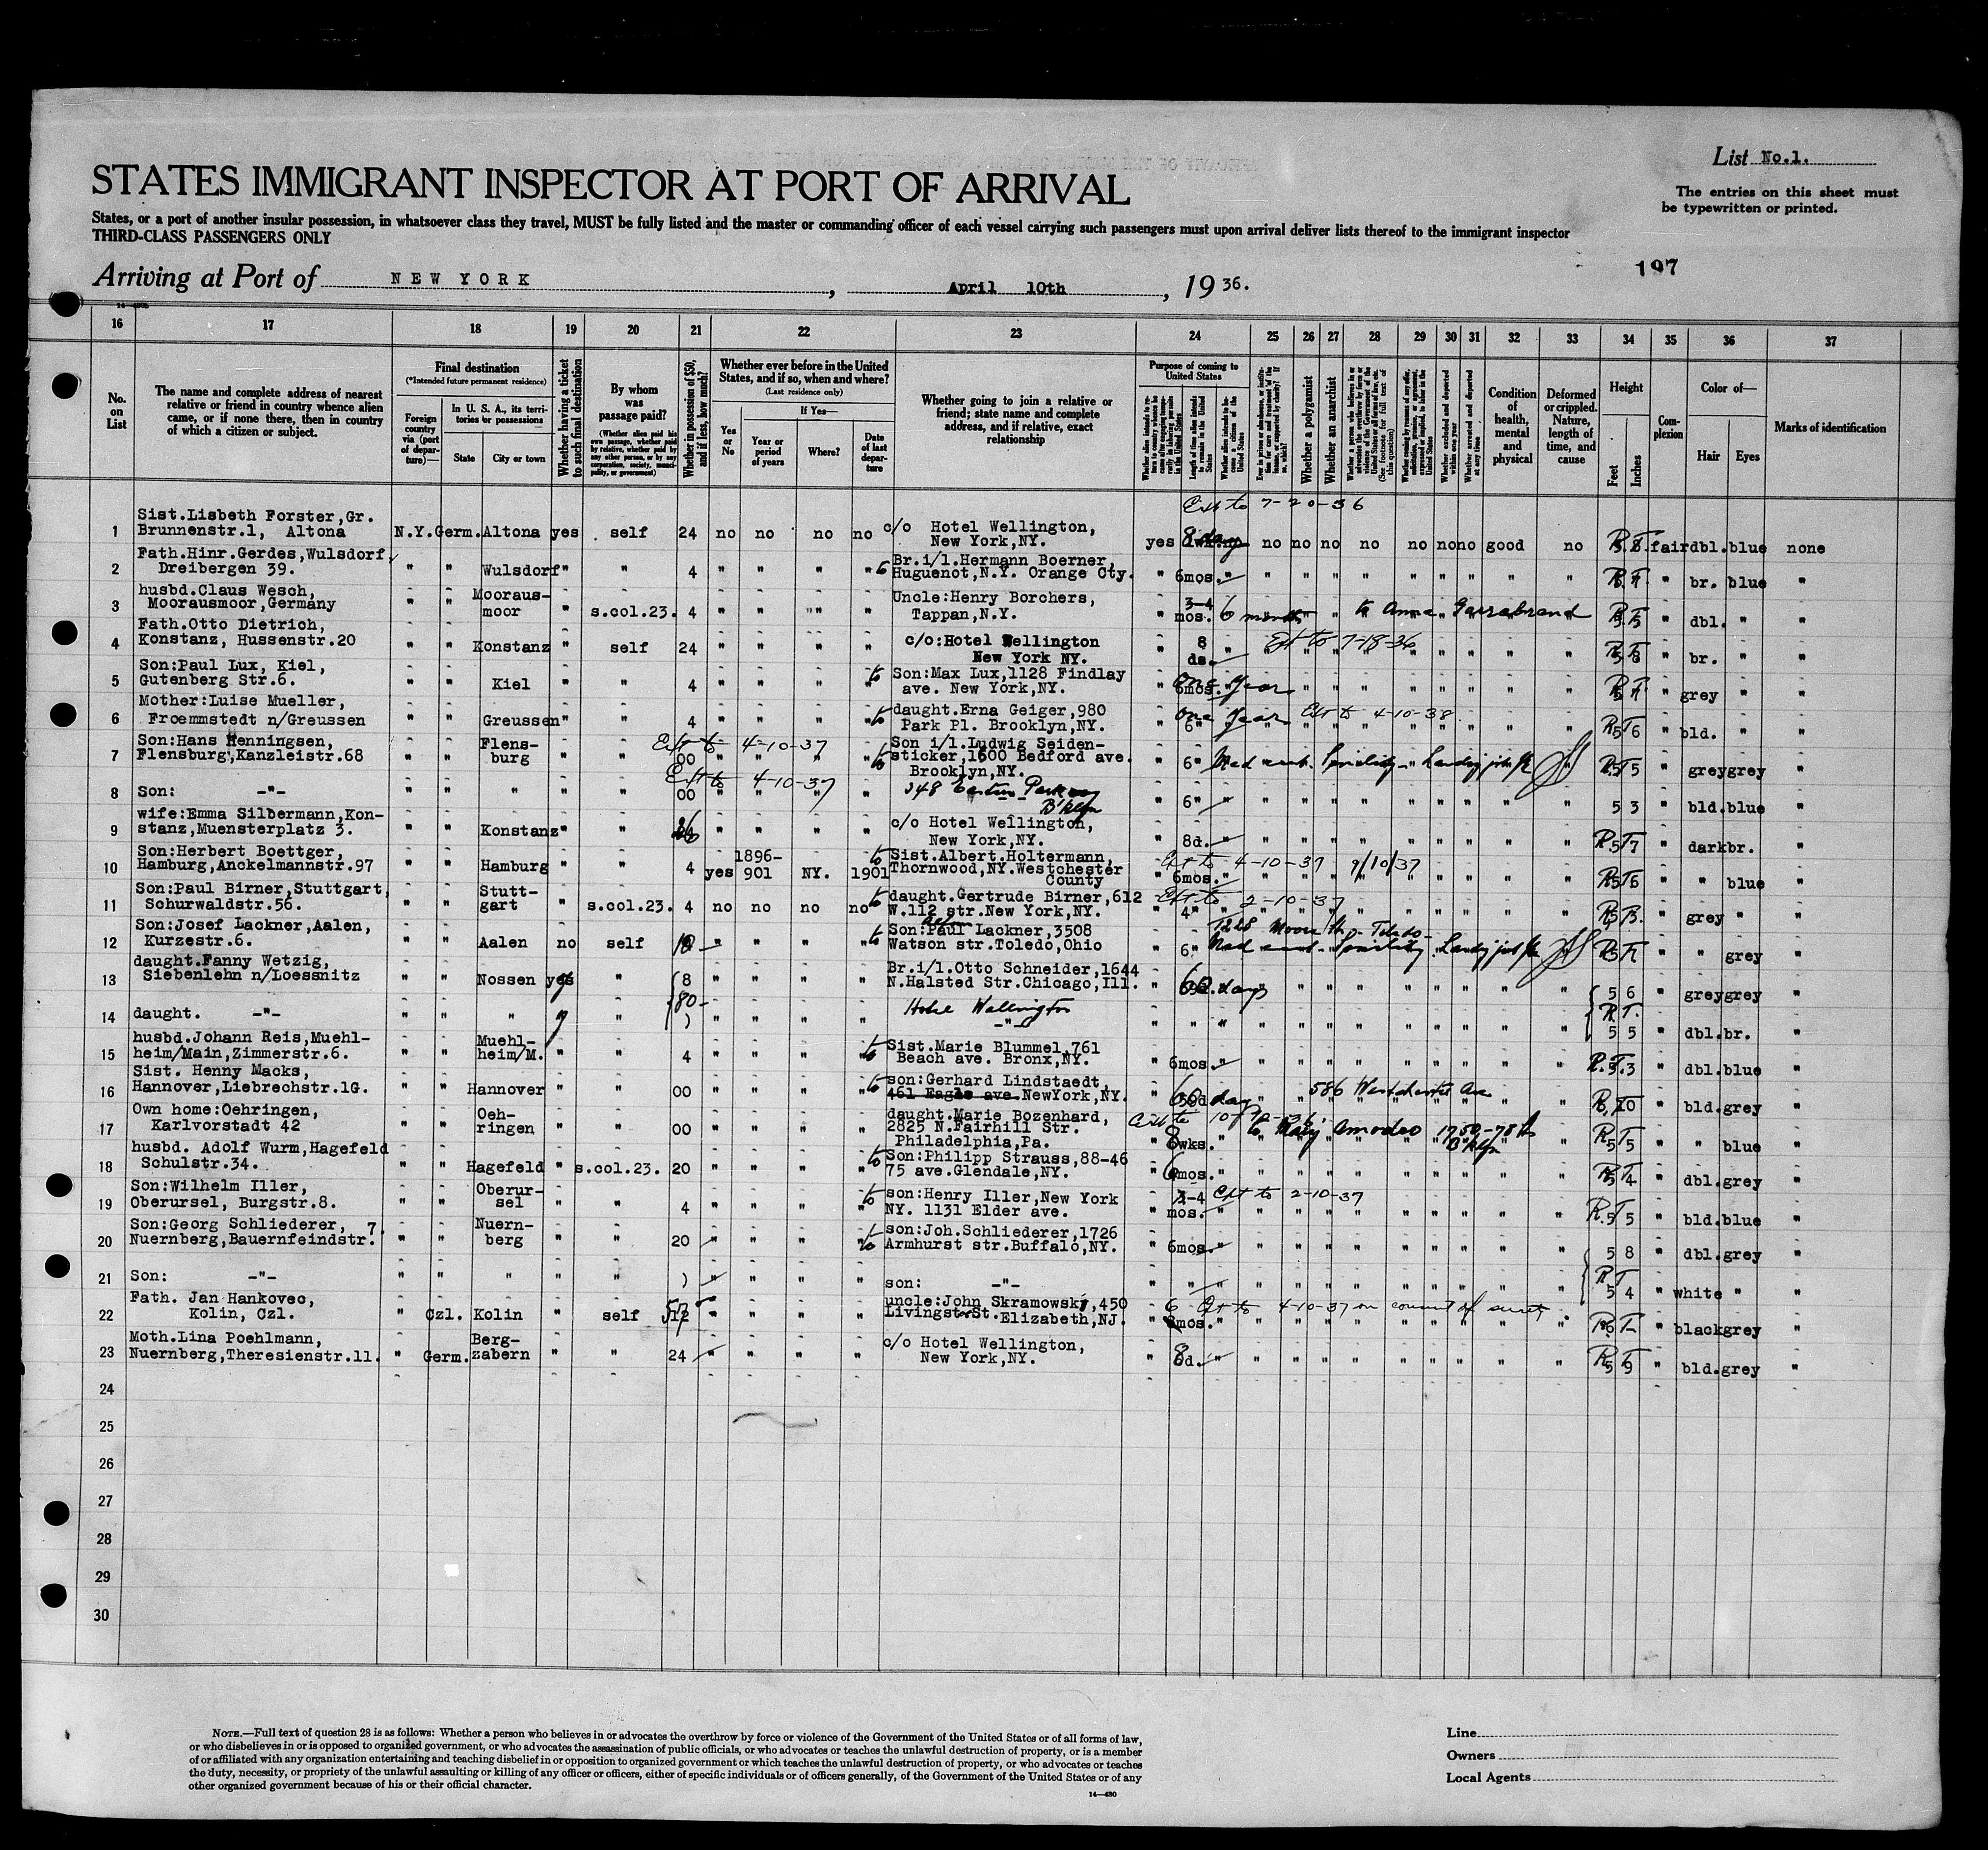 List No.1.
STATES IMMIGRANT INSPECTOR AT PORT OF ARRIVAL
The entries on this sheet must
be typewritten or printed.
States, or a port of another insular possession, in whatsoever class they travel, MUST be fully listed and the master or commanding officer of each vessel carrying such passengers must upon arrival deliver lists thereof to the immigrant inspector
THIRD-CLASS PASSENGERS ONLY
197
Arriving at Port of NEW YORK, April 10th, 1936.
16 17 18 19 20 21 22 23 24 25 26 27 28 29 30 31 32 33 34 35 36 37
No. on List
The name and complete address of nearest relative or friend in country whence alien came, or if none there, then in country of which a citizen or subject.
Final destination
(*Intended future permanent residence)
Foreign country via (port of departure)—
In U. S. A., its territories or possessions
State City or town
Whether having a ticket to such final destination
By whom was passage paid?
(Whether alien paid his own passage, whether paid by relative, whether paid by any other person, or by any corporation, society, municipality, or government)
Whether in possession of $50, and if less, how much?
Whether ever before in the United States, and if so, when and where?
(Last residence only)
Yes or No
If Yes—
Year or period of years
Where?
Date of last departure
Whether going to join a relative or friend; state name and complete address, and if relative, exact relationship
Purpose of coming to United States
Length of time alien intends to remain in the United States
Whether alien intends to become a citizen of the United States
Whether a polygamist
Whether an anarchist
Condition of health, mental and physical
Deformed or crippled. Nature, length of time, and cause
Height
Feet Inches
Complexion
Color of—
Hair Eyes
Marks of identification
Ext to 7-20-36
1 Sist.Lisbeth Forster,Gr. Brunnenstr.1, Altona N.Y. Germ. Altona yes self 24 no no no no c/o Hotel Wellington, New York,NY. yes 8 days no no no no no no no good no 5 8 fair dbl. blue none
2 Fath.Hinr.Gerdes,Wulsdorf, Dreibergen 39. " " Wulsdorf " " 4 " " " " to Br.i/l.Hermann Boerner, Huguenot,N.Y. Orange Cty. " 6mos. " " " " " " " " " " " br. blue "
3 husbd.Claus Wesch, Moorausmoor,Germany " " Moorausmoor " s.col.23. 4 " " " " Uncle:Henry Borchers, Tappan,N.Y. " 3-4 mos. 6 months to Anna Garrabrand 5 5 " dbl. " "
4 Fath.Otto Dietrich, Konstanz, Hussenstr.20 " " Konstanz " self 24 " " " " c/o:Hotel Wellington New York NY. " 8 ds. Ext to 7-18-36 " br. " "
5 Son:Paul Lux, Kiel, Gutenberg Str.6. " " Kiel " " 4 " " " " to Son:Max Lux,1128 Findlay ave. New York,NY. " 6mos. One Year " grey " "
6 Mother:Luise Mueller, Froemmstedt n/Greussen " " Greussen " " 4 " " " " to daught.Erna Geiger,980 Park Pl. Brooklyn,NY. " 6" One Year Ext to 4-10-38 5 6 " bld. " "
7 Son:Hans Henningsen, Flensburg,Kanzleistr.68 " " Flensburg " " Ext to 4-10-37 00 " " " " to Son i/l.Ludwig Seidensticker,1600 Bedford ave. Brooklyn,NY. " 6" Med cert. Senility 5 5 " grey grey "
8 Son: -"- " " " " " Ext to 4-10-37 00 " " " " 348 Eastern Parkway B'klyn " 6" 5 3 " bld. blue "
9 wife:Emma Silbermann,Konstanz,Muensterplatz 3. " " Konstanz " " " " " " c/o Hotel Wellington, New York,NY. " 8d. 5 7 " dark br. "
10 Son:Herbert Boettger, Hamburg,Anckelmannstr.97 " " Hamburg " " 4 yes 1896-901 NY. 1901 to Sist.Albert.Holtermann, Thornwood,NY.Westchester County " 6mos. Ext to 4-10-37 9/10/37 5 6 " " blue "
11 Son:Paul Birner,Stuttgart, Schurwaldstr.56. " " Stuttgart " s.col.23. 4 no no no no to daught.Gertrude Birner,612 W.112 str.New York,NY. " 4" Ext to 2-10-37 " grey " "
12 Son:Josef Lackner,Aalen, Kurzestr.6. " " Aalen no self " " " " to Son:Paul Lackner,3508 Watson str.Toledo,Ohio " 6" Toledo Med cert. Senility " " grey "
13 daught.Fanny Wetzig, Siebenlehn n/Loessnitz " " Nossen yes " 8 " " " " Br.i/l.Otto Schneider,1644 N.Halsted Str.Chicago,Ill. " 60 days 5 6 " grey grey "
14 daught. -"- " " " " 80- " " " " Hotel Wellington -"- " " " 5 5 " dbl. br. "
15 husbd.Johann Reis,Muehlheim/Main,Zimmerstr.6. " " Muehlheim/M. " " 4 " " " " to Sist.Marie Blummel,761 Beach ave. Bronx,NY. " 6mos. 5 3 " dbl. blue "
16 Sist. Henny Macks, Hannover,Liebrechstr.1G. " " Hannover " " 00 " " " " to son:Gerhard Lindstaedt, 461 Eagle ave.NewYork,NY. " 60 days 586 Westchester Ave " bld. grey "
17 Own home:Oehringen, Karlvorstadt 42 " " Oehringen " " 00 " " " " daught.Marie Bozenhard, 2825 N.Fairhill Str. Philadelphia,Pa. " 8wks. to Mary Amodeo 1750-78th B'klyn 5 5 " " blue "
18 husbd. Adolf Wurm,Hagefeld Schulstr.34. " " Hagefeld " s.col.23. 20 " " " " to Son:Philipp Strauss,88-46 75 ave.Glendale,NY. " 6mos. 5 4 " dbl. grey "
19 Son:Wilhelm Iller, Oberursel, Burgstr.8. " " Oberursel " " 4 " " " " to son:Henry Iller,New York NY. 1131 Elder ave. " 3-4 mos. Ext to 2-10-37 5 5 " bld. blue "
20 Son:Georg Schliederer, 7. Nuernberg,Bauernfeindstr. " " Nuernberg " " 20 " " " " to son:Joh.Schliederer,1726 Armhurst str.Buffalo,NY. " 6mos. 5 8 " dbl. grey "
21 Son: -"- " " " " " " " " " son: -"- " " " 5 4 " white " "
22 Fath. Jan Hankovec, Kolin, Czl. " Czl. Kolin " self " " " " uncle:John Skramowski,450 Livingston St. Elizabeth,NJ. " 6 mos. Ext to 4-10-37 " black grey "
23 Moth.Lina Poehlmann, Nuernberg,Theresienstr.11. " Germ. Bergzabern " " 24 " " " " c/o Hotel Wellington, New York,NY. " 8d. 5 9 " bld. grey "
24
25
26
27
28
29
30
NOTE.—Full text of question 28 is as follows: Whether a person who believes in or advocates the overthrow by force or violence of the Government of the United States or of all forms of law,
or who disbelieves in or is opposed to organized government, or who advocates the assassination of public officials, or who advocates or teaches the unlawful destruction of property, or is a member
of or affiliated with any organization entertaining and teaching disbelief in or opposition to organized government or which teaches the unlawful destruction of property, or who advocates or teaches
the duty, necessity, or propriety of the unlawful assaulting or killing of any officer or officers, either of specific individuals or of officers generally, of the Government of the United States or of any
other organized government because of his or their official character.
14—430
Line
Owners
Local Agents